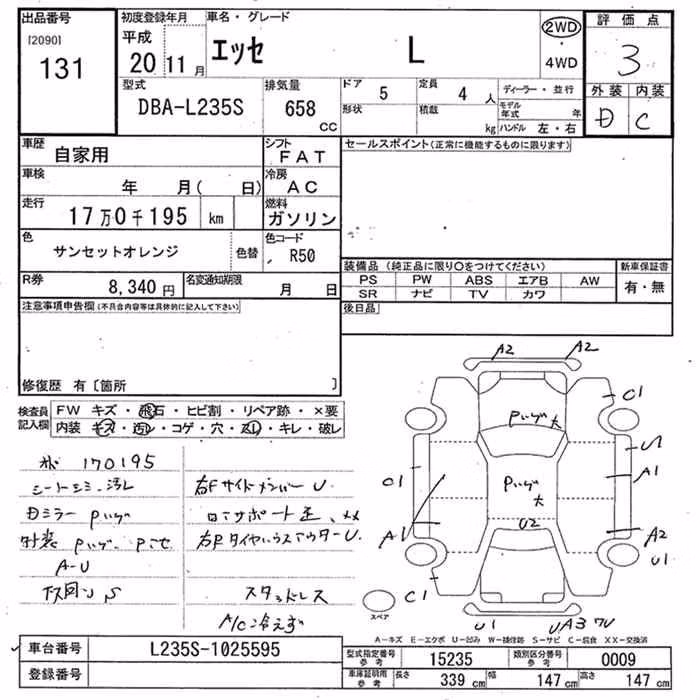 出品番号 [2090] 131
初度登録年月 平成 20 11 月
車名・グレード エッセ L
2WD ・ 4WD
評価点 3
外装 内装
D C
型式 DBA-L235S
排気量 658 CC
ドア 5
定員 4 人
形状
積載 kg
ディーラー・並行
モデル年式 年
ハンドル 左・右
車歴 自家用
シフト FAT
セールスポイント(正常に機能するものに限ります)
車検 年 月( 日)
冷房 AC
走行 17万0千195 km
燃料 ガソリン
色 サンセットオレンジ 色替
色コード R50
装備品 (純正品に限り○をつけてください)
新車保証書
PS PW ABS エアB AW
SR ナビ TV カワ
有・無
R券 8,340 円
名変通知期限 月 日
後日品
注意事項申告欄(不具合内容等は具体的に記入して下さい)
修復歴 有〔箇所 〕
検査員記入欄
FW キズ・飛石・ヒビ割・リペア跡・×要
内装 キズ・汚レ・コゲ・穴・スレ・キレ・破レ
170195
シートシミ、汚レ
Dミラー Pハゲ
外装 Pハゲ、
A-U
下回り S
右Fサイドメンバー U.
コアサポート 歪、XX
スタッドレス
A/C冷えず
A2 A2
C1
Pハゲ大
U
C1
A1
Pハゲ大
A1
U2
A2
U1
C1
スペア
U1
A-キズ E-エクボ U-凹み W-補修跡 S-サビ C-腐食 XX-交換済
車台番号 L235S-1025595
型式指定番号 参考 15235
類別区分番号 参考 0009
登録番号
車庫証明用 参考 長さ 339 cm 幅 147 cm 高さ 147 cm